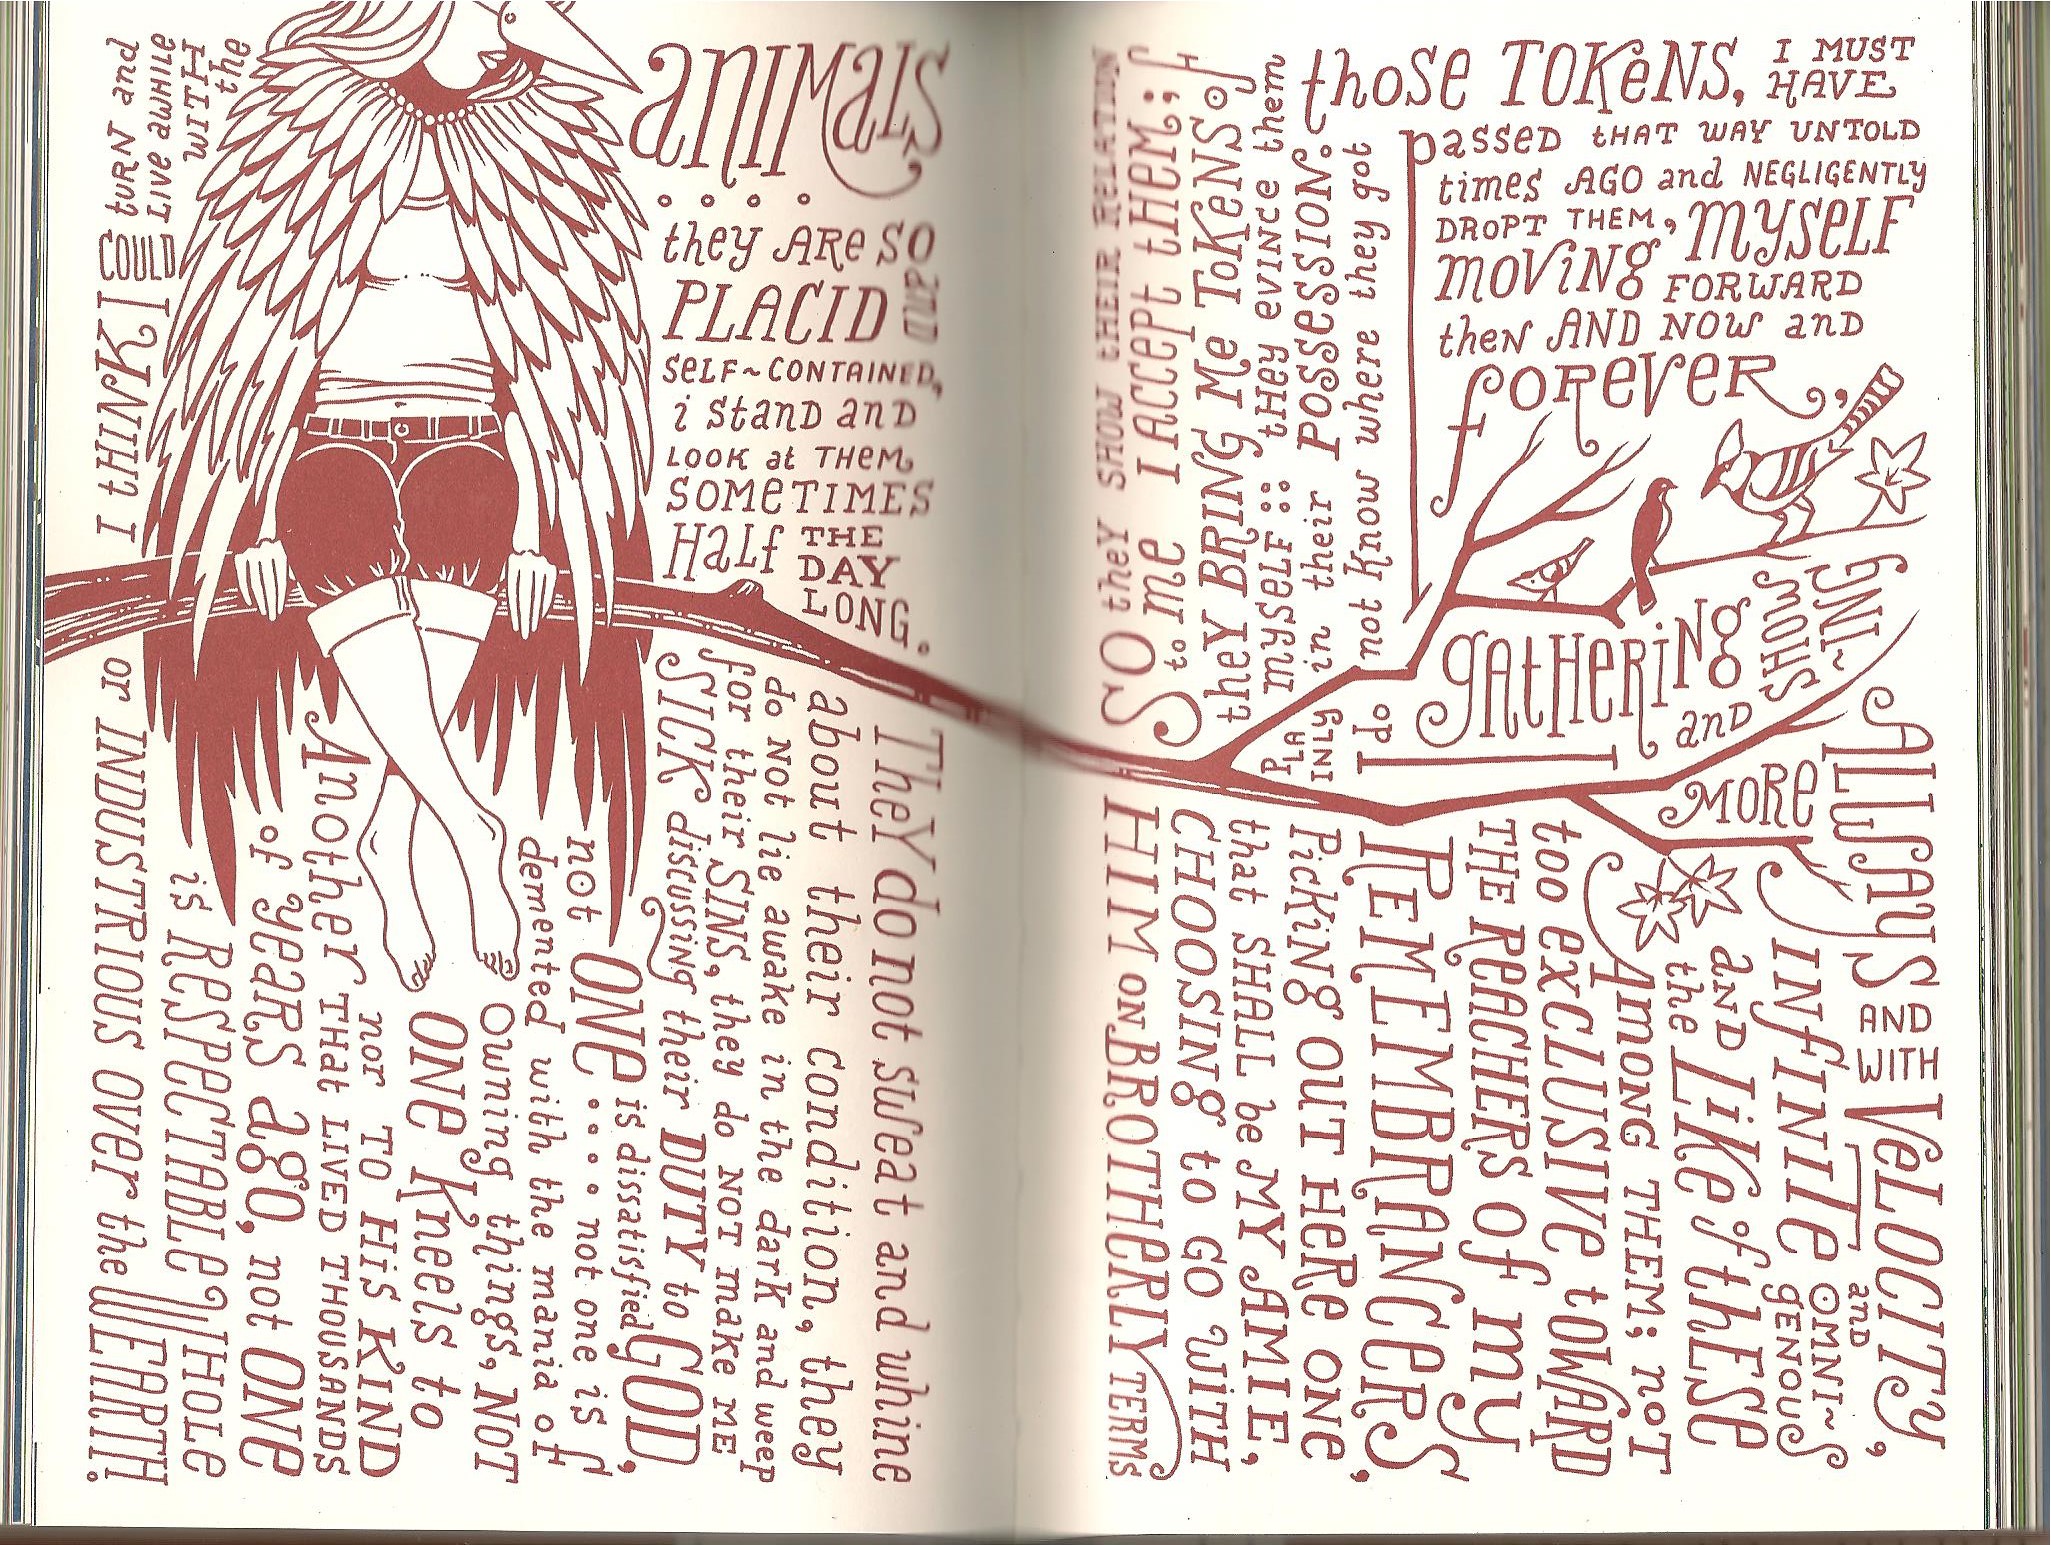 I tHINK I COULD tURN and
LIVE aWHILE
WITH
the
anIMaLS
. . . .
they ARe SO
PLACID and
SeLF~CONTAINED,
i StanD anD
LOOK at THeM
SOMeTIMES
HaLf THE
DAY
LONG.
They do not sweat and whine
about their condition, they
do NOT lie awake in the dark and weep
for their SINS, they do NOT make ME
SICK discussing their DUTY to GOD,
not ONe is dissatisfied
. . . . not one is
demented with the mania of
Owning things, NOT
ONe Kneels to
Another nor TO HiS KIND
THaT LIVED THOUSANDS
of yeaRS ago, not ONe
is ReSPeCTABLe WHOLe
or INDUSTRIOUS OVer the WHOLE EARTH.
SO theY SHOW tHeIR ReLATION
to me I ACCePt tHeM;
theY BRING Me ToKeNS of
mySeLF :: tHey evince them
PLAINLY in their POSSeSSION.
I do not Know where they got
those TOKeNS, I MUST
HAVE
PasseD tHAT WAY UNTOLD
times AGO and NEGLIGENTLy
DROPT THEM, MySeLF
MOViNg FORWARD
theN AND NOW anD
fOReVeR,
gAtHeRiNg
and SHOWS
ING~
MORe
ALWAyS AND
WITH VeLOCITy,
INfINITe OMNI~
geNOUS and
AND the LiKe of tHESe
AMONG THEM; NOT
too exCLUSIVe tOWARD
THE ReACHeRS Of My
ReMeMBRANCeRS,
PicKiNg OUT HeRe ONe
that SHALL be MY AMIE,
CHOOSINg to GO WITH
HIM ON BROTHeRLy TeRMS